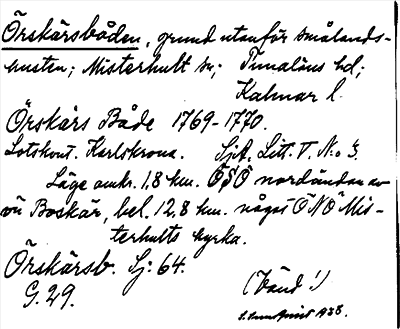 Örskärsbåden, grund utanför smålands-
kusten; Misterhult sn; Tunaläns hd;
Kalmar l.
Örskärs Både 1769-1770.
Lotskont. Karlskrona. Sjk. Litt. V. No 3.
Läge omkr. 1,8 km. ÖSÖ nordändan av
ön Boskär, bel. 12,8 km. något ÖNÖ Mis-
terhults kyrka.
Örskärsb. Sj: 64.
G. 29.
(Vänd!)
1938.